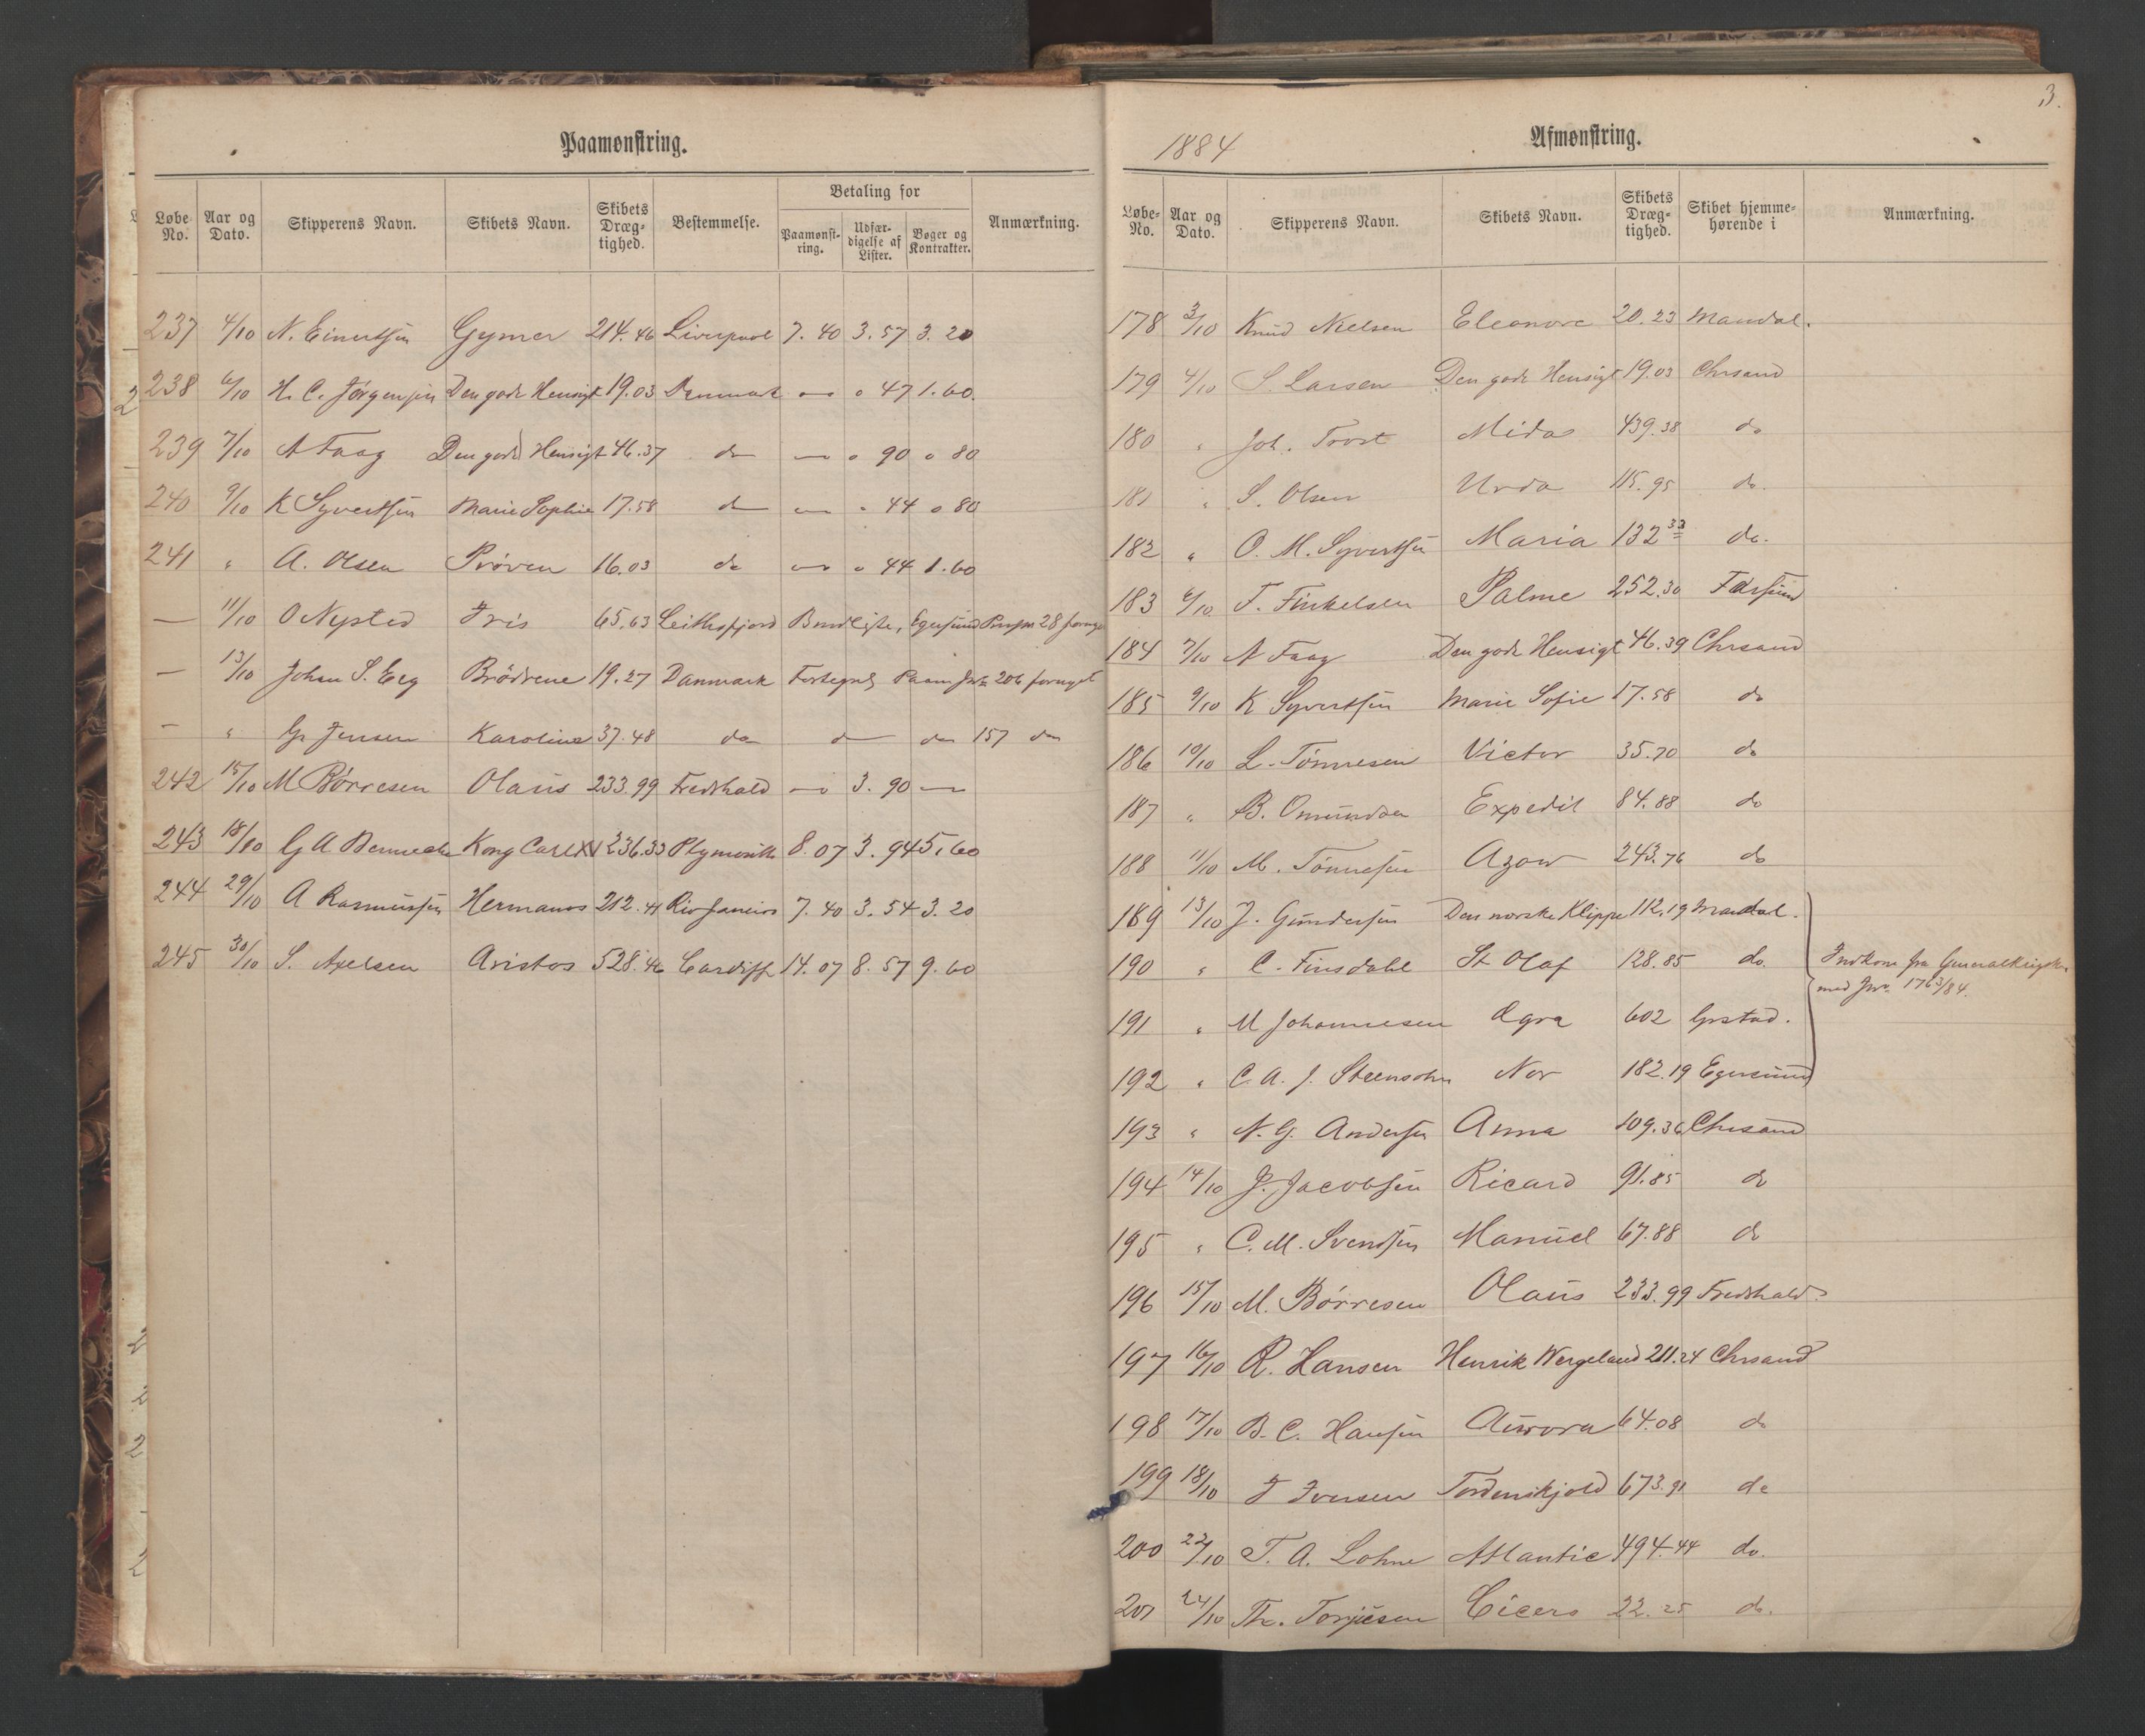 Paamønstring.
Løbe No. Aar og Dato. Skipperens Navn. Skibets Navn. Skibets Dræg- tighed. Bestemmelse. Betaling for Paamønst- ring. Udfær- digelse af Lister. Bøger og Kontrakter. Anmærkning.
237 4/10 N. Einertsen Gymer 214.46 Liverpool 7.40 3.57 3.20
238 6/10 H. C. Jörgensen Den gode Hensigt 19.03 Danmark — " 47 1.60.
239 7/10 A Faag Den gode Hensigt 46.37 do — " 90 " 80
240 9/10 K Syvertsen Marie Sophie 17.58 do — " 44 " 80
241 " A. Olsen Pröven 16.03 do — " 44 1.60
— 11/10 O Nysted Iris 65.63 Leithsfjord Egersund 28
— 13/10 Johan S. Eeg Brödrene 19.27 Danmark 206
— " Gr Jensen Karoline 37.48 do do do 157 do
242 15/10 M Börresen Olaus 233.99 Fredshald — 3.90 —
243 18/10 G A Kong Carl XV 236.33 Plymouth 8.07 3.94 5.60
244 29/10 A Rasmussen Hermanos 212.41 Rio Janeiro 7.40 3.54 3.20
245 30/10 S. Axelsen Aristos 528.46 Cardiff 14.07 8.57 9.60
3.
1884 Afmønstring.
Løbe- No. Aar og Dato. Skipperens Navn. Skibets Navn. Skibets Dræg- tighed. Skibet hjemme- hørende i Anmærkning.
178 3/10 Knud Nielsen Eleonore 20.23 Mandal.
179 4/10 S. Larsen Den gode Hensigt 19.03 Chrsand
180 " Joh. Trost Midas 439.38 do
181 " S. Olsen Urda 115.95 do.
182 " O. M. Syvertsen Maria 132 33 do.
183 6/10 T. Finkelsen Palme 252.30 Farsund
184 7/10 A Faag Den gode Hensigt 46.39 Chrsand
185 9/10 K Syvertsen Marie Sofie 17.58 do
186 10/10 L. Tönnesen Victor 35.70 do
187 " B. Omundsen Expedit 84.88 do
188 11/10 M. Tönnesen Azow 243.76 do
189 13/10 J. Gundersen Den norske Klippe 112.19 Mandal.
190 " C. Finsdahl St Olaf 128.85 do. Indkom fra
191 " M Johannesen Ægra 602 Grstad. med 1763/84.
192 " C. A. J. Steensohn Nor 182.19 Egersund
193 " N. G. Andersen Anna 109.36 Chrsand
194 14/10 J. Jacobsen Ricard 91.85 do
195 " C. M. Svendsen Manuel 67.88 do
196 15/10 M. Börresen Olaus 233.99 Fredshald
197 16/10 R. Hansen Henrik Wergeland 211.24 Chrsand
198 17/10 B. C. Hansen Aurora 64.08 do
199 18/10 I Iversen Tordenskjold 673.91 do
200 22/10 T. A. Lohne Atlantic 494.44 do.
201 24/10 Th. Torjusen Cicero 22.25 do.